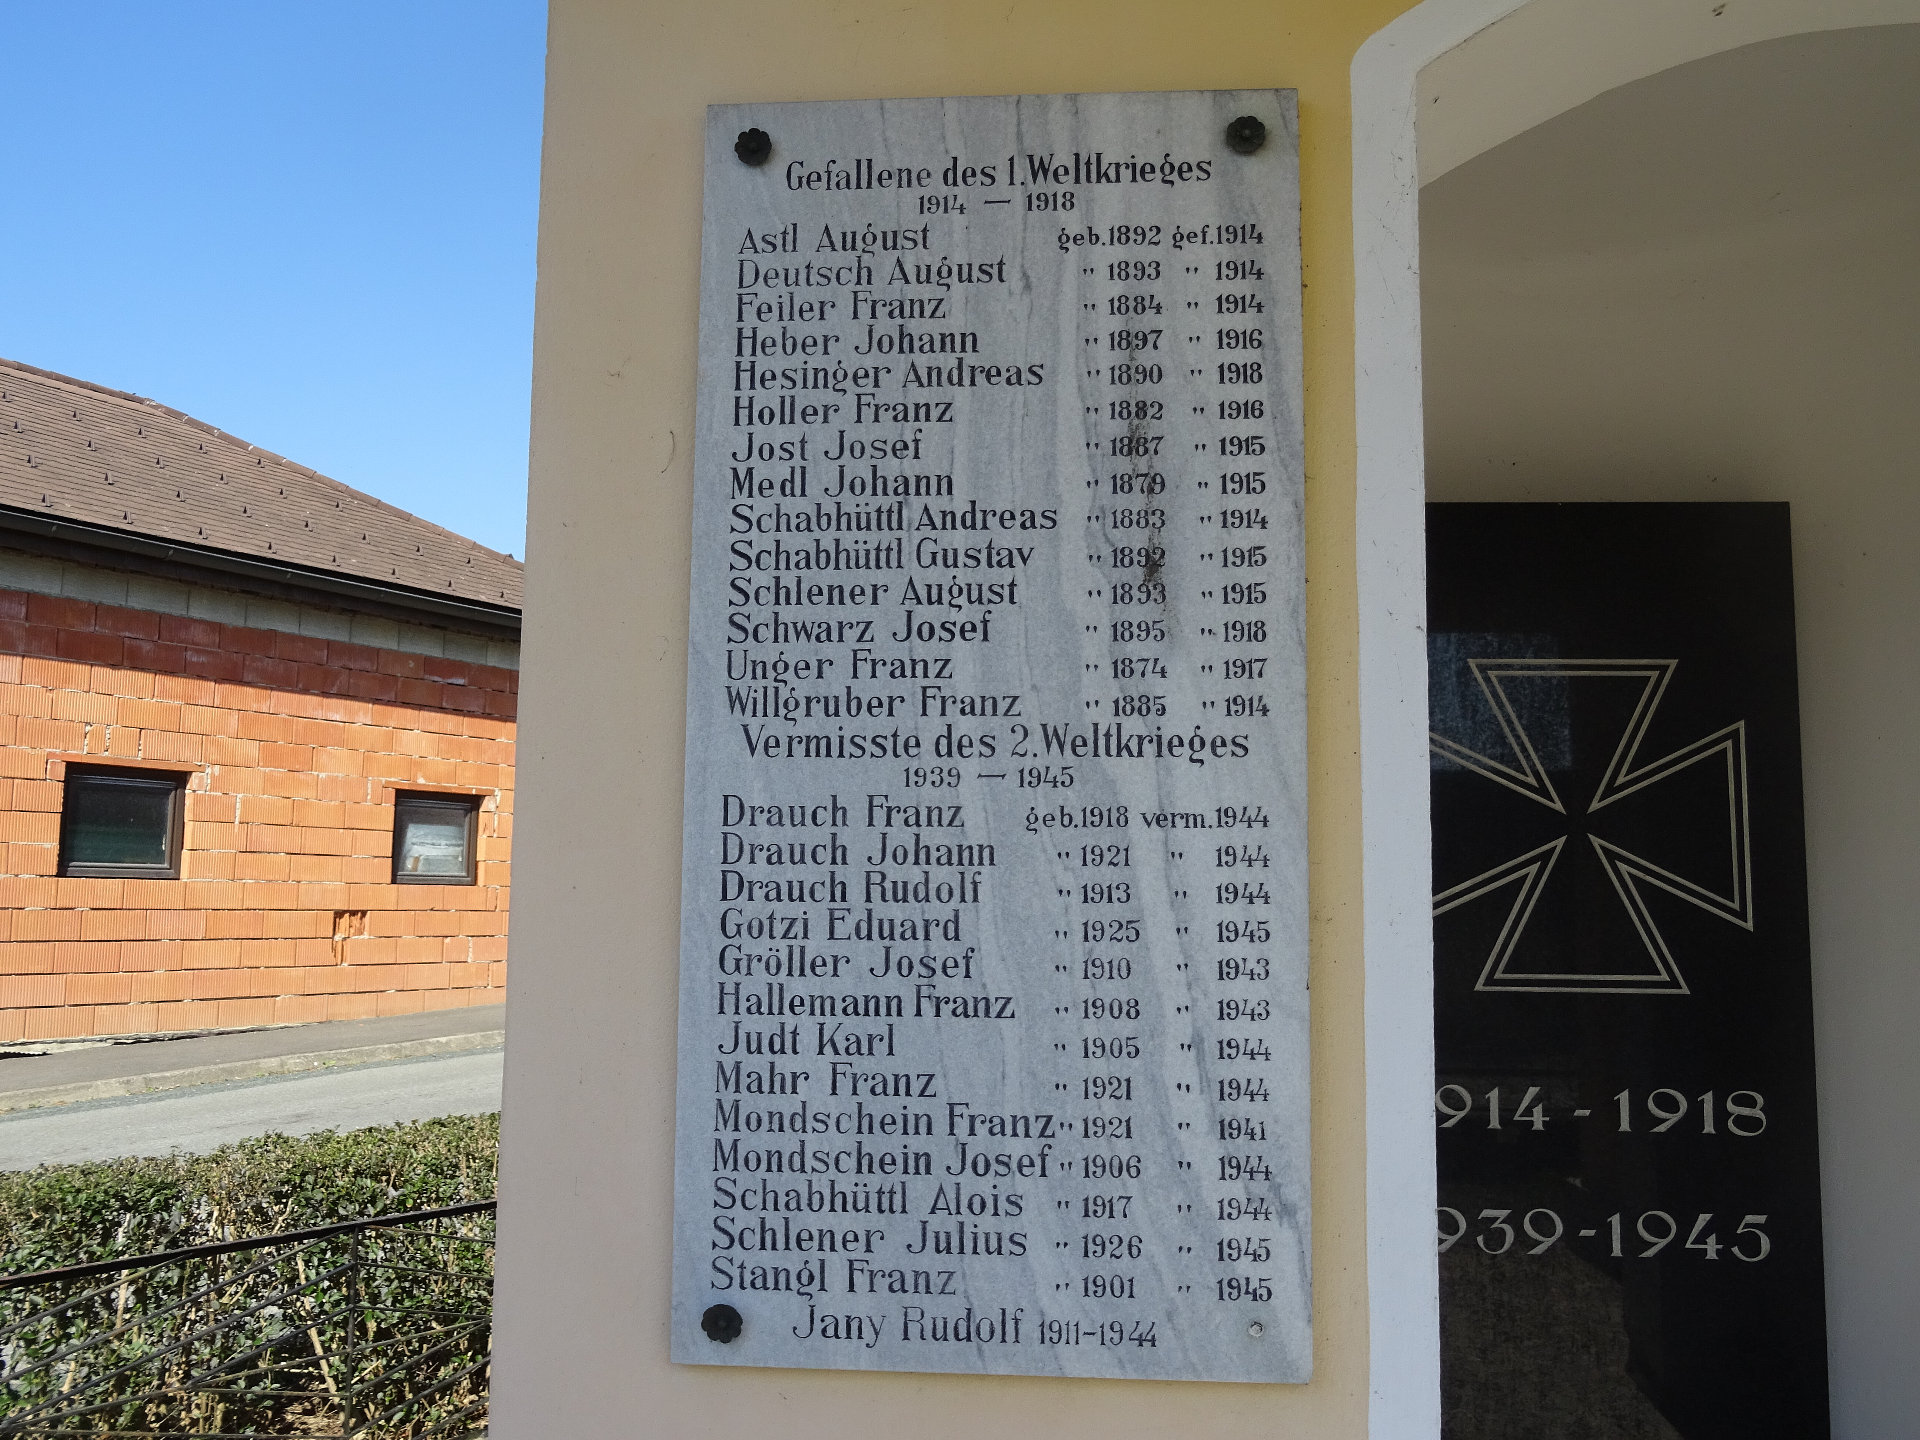 Gefallene des 1. Weltkrieges
1914 — 1918
Astl August geb. 1892 gef. 1914
Deutsch August " 1893 " 1914
Feiler Franz " 1884 " 1914
Heber Johann " 1897 " 1916
Hesinger Andreas " 1890 " 1918
Holler Franz " 1882 " 1916
Jost Josef " 1887 " 1915
Medl Johann " 1879 " 1915
Schabhüttl Andreas " 1883 " 1914
Schabhüttl Gustav " 1892 " 1915
Schlener August " 1893 " 1915
Schwarz Josef " 1895 " 1918
Unger Franz " 1874 " 1917
Willgruber Franz " 1885 " 1914
Vermisste des 2. Weltkrieges
1939 — 1945
Drauch Franz geb. 1918 verm. 1944
Drauch Johann " 1921 " 1944
Drauch Rudolf " 1913 " 1944
Gotzi Eduard " 1925 " 1945
Gröller Josef " 1910 " 1943
Hallemann Franz " 1908 " 1943
Judt Karl " 1905 " 1944
Mahr Franz " 1921 " 1944
Mondschein Franz " 1921 " 1941
Mondschein Josef " 1906 " 1944
Schabhüttl Alois " 1917 " 1944
Schlener Julius " 1926 " 1945
Stangl Franz " 1901 " 1945
Jany Rudolf 1911-1944
914 - 1918
939 - 1945